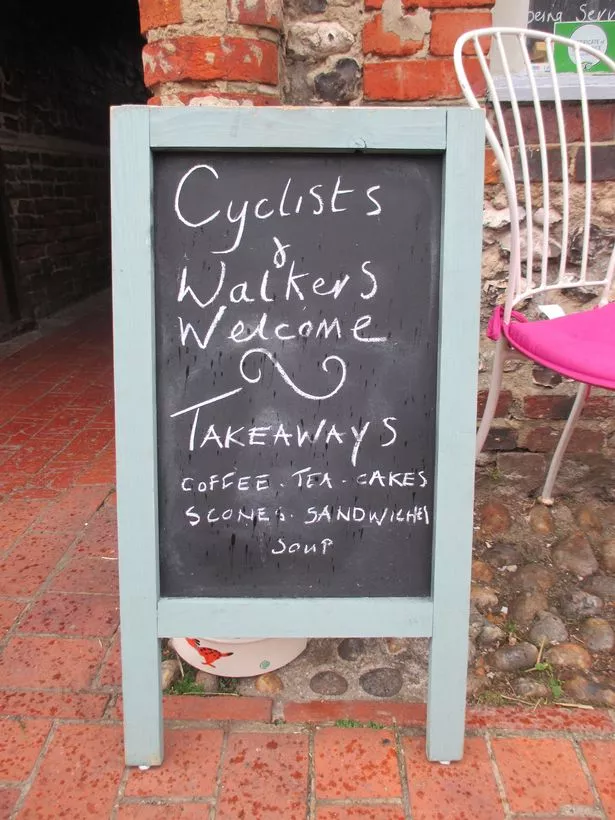 being Serv
Cyclists
&
Walkers
Welcome
TAKEAWAYS
COFFEE . TEA . CAKES
SCONES . SANDWICHES
SOUP